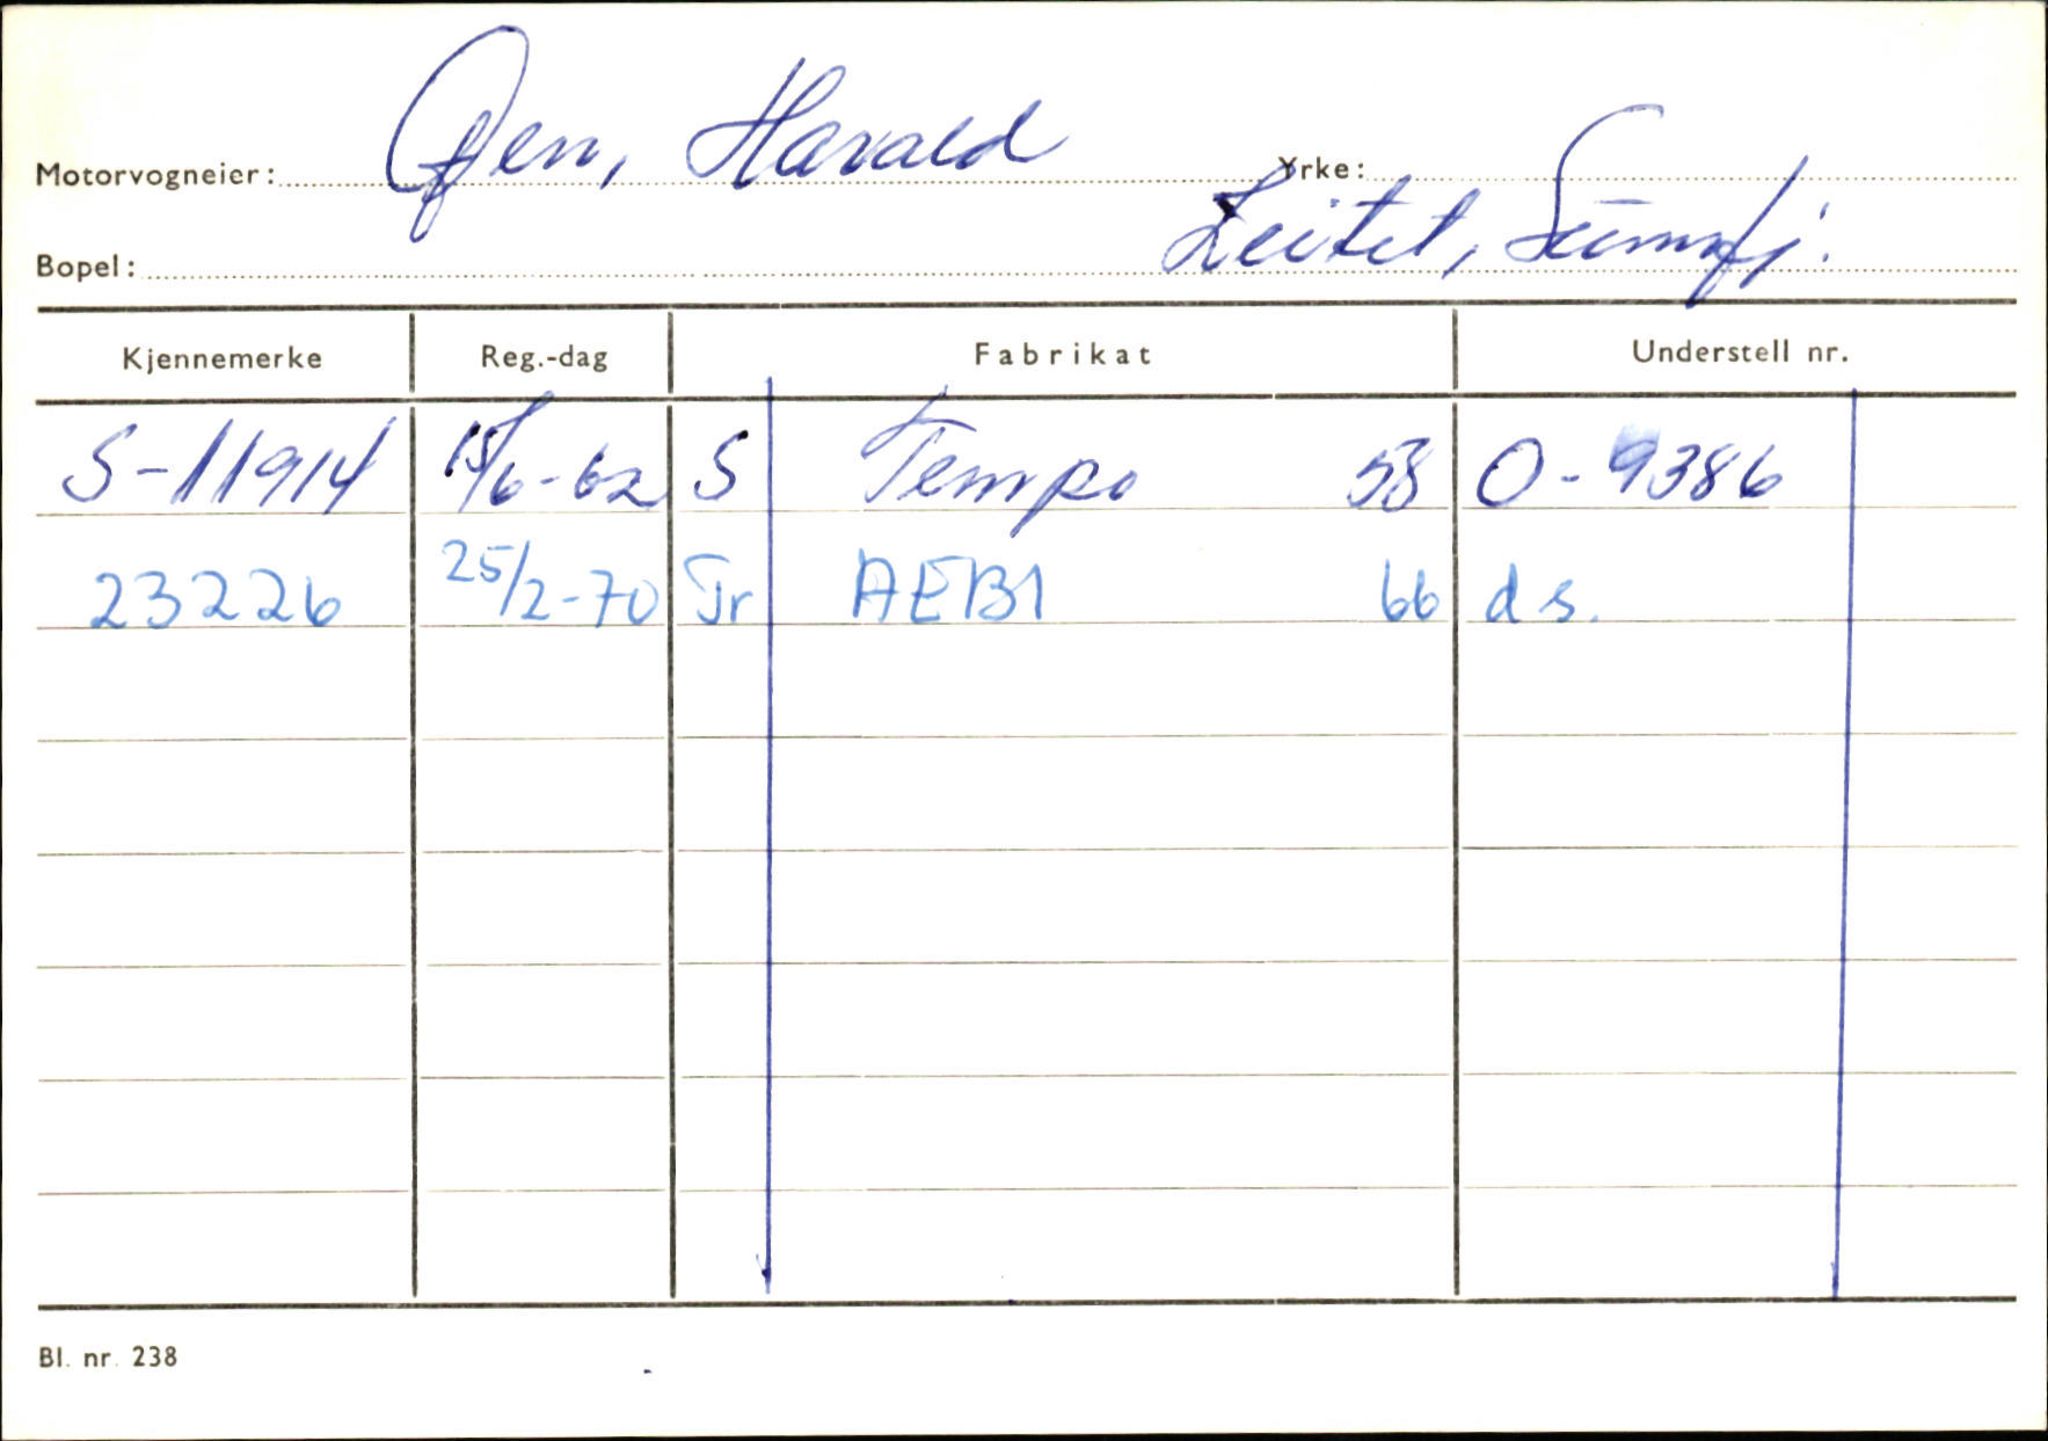 Motorvogneier: Øen, Harald Yrke:
Bopel: Leitet, Sunnfj.
Kjennemerke Reg.-dag Fabrikat Understell nr.
S-11914 15/6-62 S Tempo 58 0-9386
23226 25/2-70 Tr AEBI 66 ds.
Bl. nr. 238